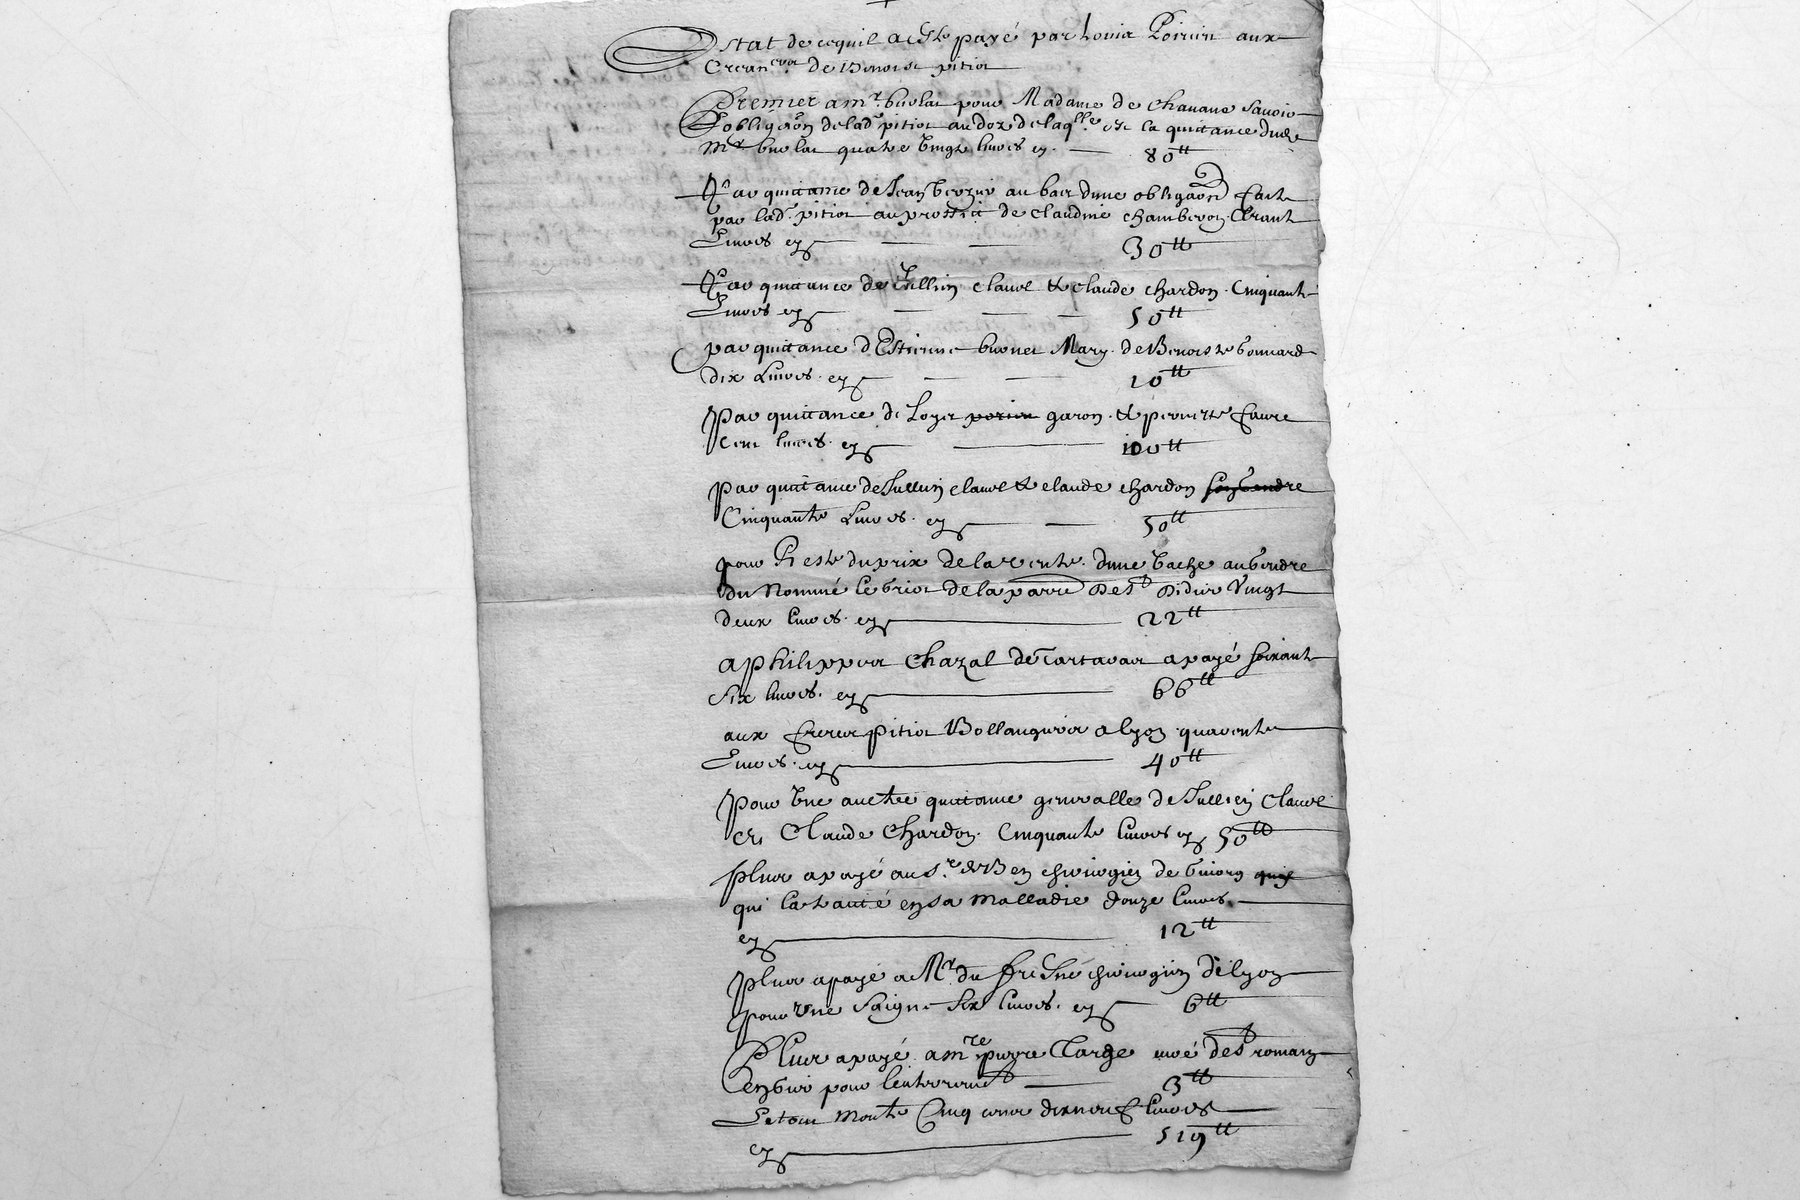 Estat de ce quil a esté payé par Louis Poirier aux
Crean.ers de Benoist pitiot
Premier a mr. buolat pour Madame de Chavane Savoir
Lobligaon de lad. pitiot au doz de laqlle est la quittance dud.
Mr buolat quatre vingt livres cy. 80tt
Par quittance de Jean au bas dune obligaon faite
par lad. pitiot au proffit de Claudine Chamberon trante
Livres cy 30tt
Par quittance de Jullien Clavel & Claude Chardon. Cinquante
Livres cy 50tt
par quittance dEstienne brunet Mary. de Benoiste bonnard
dix Livres. cy 10tt
Par quittance de Loyer garon. & pernette favre
Cent livres. cy 100tt
Par quittance de Jullien Clavel & Claude Chardon
Cinquante Livres. cy 50tt
pour Reste du prix de la vente. dune vache au gendre
du Nommé de la parre De St Didier Vingt
deux livres. cy 22tt
a philippes Chazal de Tartaras a payé soixante
six livres. cy 66tt
aux freres pitiot Bollangers a lyon quarente
Livres. cy 40tt
Pour Une autre quittance generalle de Jullien Clavel
et Claude Chardon. Cinquante livres cy 50tt
Plus a payé au sr. chirurgien de Givors
qui la traité en sa malladie douze livres
cy 12tt
Plus a payé a Mr du fresne chirurgien de lyon
pour Une saigne six livres. cy 6tt
Plus a payé a mre pierre Targe curé de St romain
en Gier pour lenterremt 3tt
Le tout monte Cinq cens dixneuf livres
cy 519tt